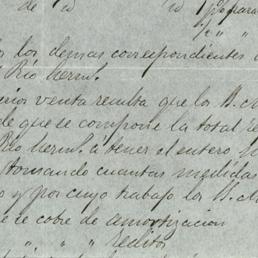 de id id para
" " "
los demas correspondientes a
Rio herm.
venta resulta que los S.
de que se compone la total
Rio herm. a tener el entero
tomando cuantas medidas
y por cuyo trabajo los S.
se cobre de amortizacion
" " " reditos